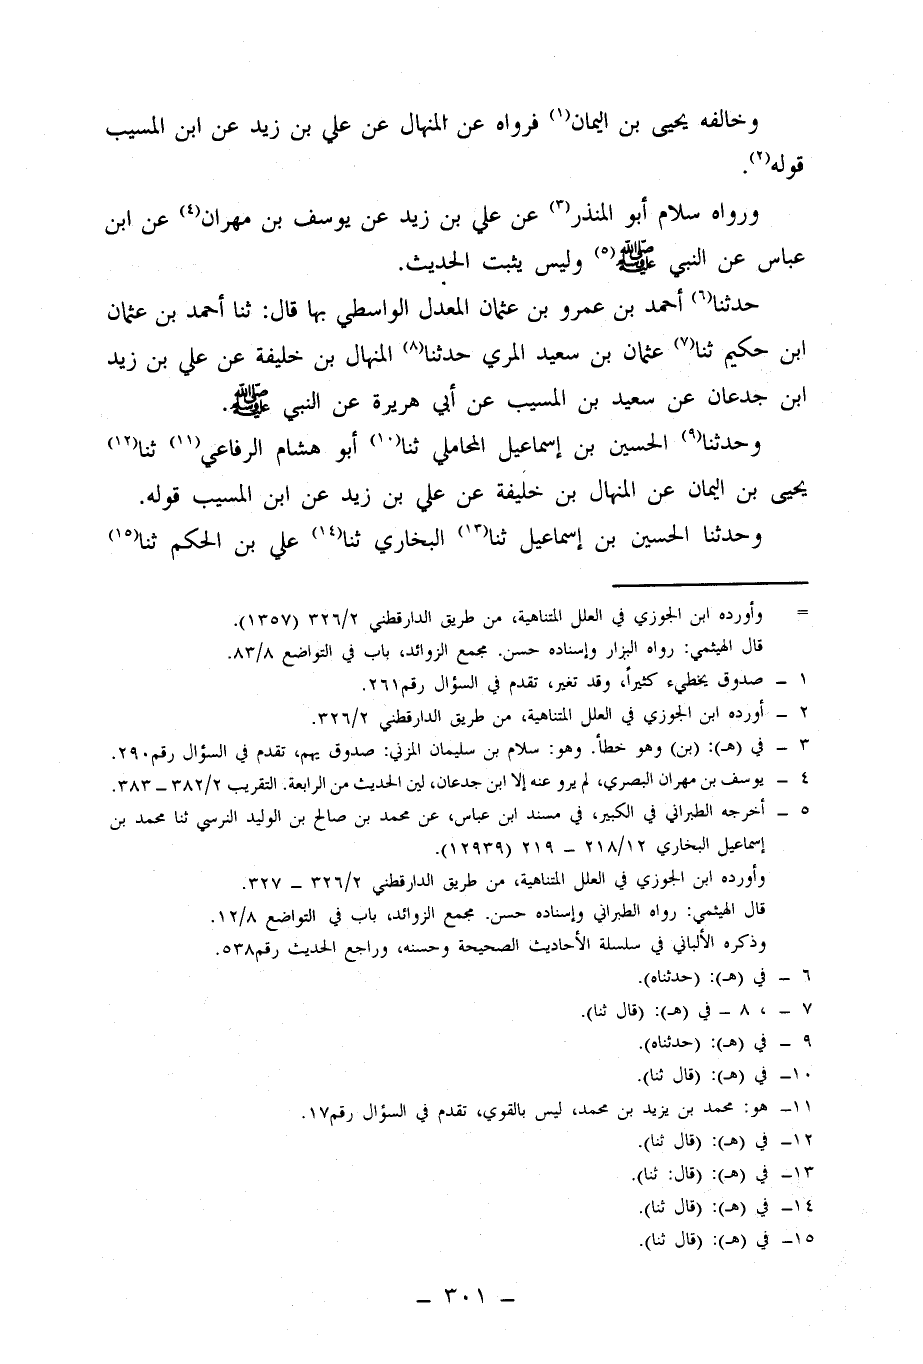 وخالفه يحيى بن اليمان(١) فرواه عن المنهال عن علي بن زيد عن ابن المسيب
قوله(٢).
ورواه سلام أبو المنذر(٣) عن علي بن زيد عن يوسف بن مهران(٤) عن ابن
عباس عن النبي ﷺ(٥) وليس يثبت الحديث.
حدثنا(٦) أحمد بن عمرو بن عثمان المعدل الواسطي بها قال: ثنا أحمد بن عثمان
ابن حكيم ثنا(٧) عثمان بن سعيد المري حدثنا(٨) المنهال بن خليفة عن علي بن زيد
ابن جدعان عن سعيد بن المسيب عن أبي هريرة عن النبي ﷺ.
وحدثنا(٩) الحسين بن إسماعيل المحاملي ثنا(١٠) أبو هشام الرفاعي(١١) ثنا(١٢)
يحيى بن اليمان عن المنهال بن خليفة عن علي بن زيد عن ابن المسيب قوله.
وحدثنا الحسين بن إسماعيل ثنا(١٣) البخاري ثنا(١٤) علي بن الحكم ثنا(١٥)
= وأورده ابن الجوزي في العلل المتناهية، من طريق الدارقطني ٣٢٦/٢ (١٣٥٧).
قال الهيثمي: رواه البزار وإسناده حسن. مجمع الزوائد، باب في التواضع ٨٣/٨.
١ ــ صدوق يخطيء كثيراً، وقد تغير، تقدم في السؤال رقم٢٦١.
٢ ــ أورده ابن الجوزي في العلل المتناهية، من طريق الدارقطني ٣٢٦/٢.
٣ ــ في (هـ): (بن) وهو خطأ. وهو: سلام بن سليمان المزني: صدوق يهم، تقدم في السؤال رقم٢٩٠.
٤ ــ يوسف بن مهران البصري، لم يرو عنه إلا ابن جدعان، لين الحديث من الرابعة. التقريب ٣٨٢/٢ ــ ٣٨٣.
٥ ــ أخرجه الطبراني في الكبير، في مسند ابن عباس، عن محمد بن صالح بن الوليد النرسي ثنا محمد بن
إسماعيل البخاري ٢١٨/١٢ ــ ٢١٩ (١٢٩٣٩).
وأورده ابن الجوزي في العلل المتناهية، من طريق الدارقطني ٣٢٦/٢ ــ ٣٢٧.
قال الهيثمي: رواه الطبراني وإسناده حسن. مجمع الزوائد، باب في التواضع ١٢/٨.
وذكره الألباني في سلسلة الأحاديث الصحيحة وحسنه، وراجع الحديث رقم٥٣٨.
٦ ــ في (هـ): (حدثناه).
٧ ــ ، ٨ ــ في (هـ): (قال ثنا).
٩ ــ في (هـ): (حدثناه).
١٠ــ في (هـ): (قال ثنا).
١١ــ هو: محمد بن يزيد بن محمد، ليس بالقوي، تقدم في السؤال رقم١٧.
١٢ــ في (هـ): (قال ثنا).
١٣ــ في (هـ): (قال: ثنا).
١٤ــ في (هـ): (قال ثنا).
١٥ــ في (هـ): (قال ثنا).
ــ ٣٠١ ــ